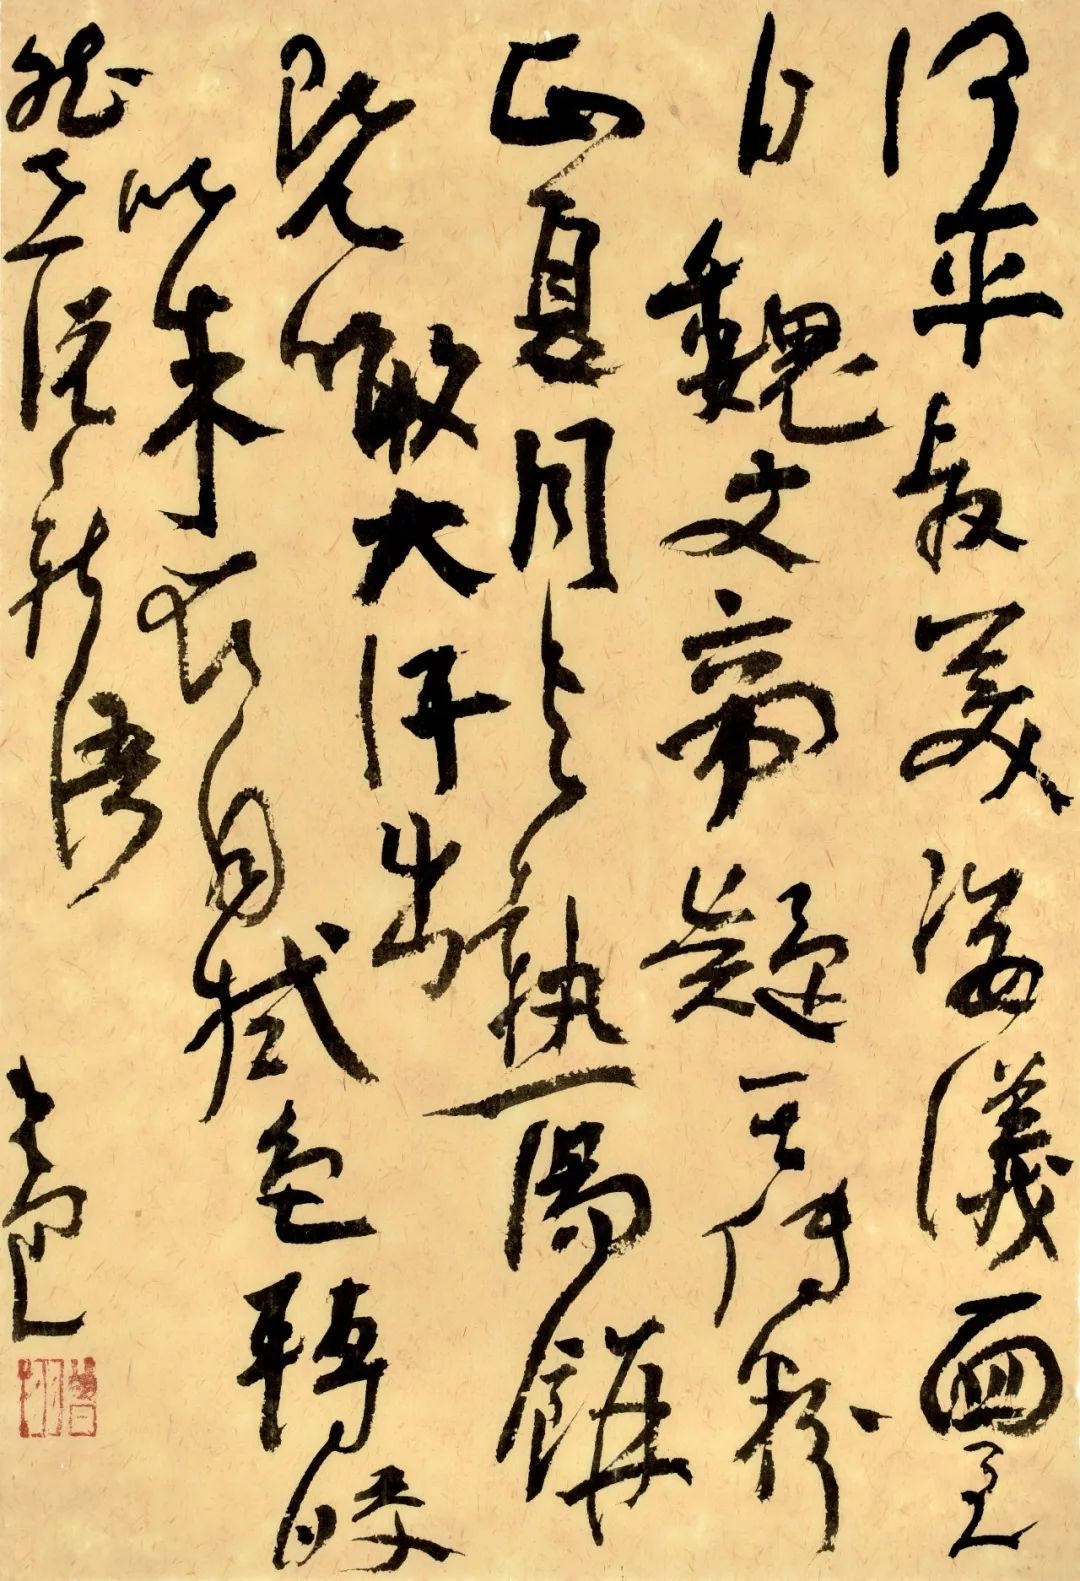 何平叔美姿儀面至
白魏文帝疑其傅粉
正夏月与熱湯餅
既噉大汗出
以朱衣自拭色轉皎
然世説新語
曾翔